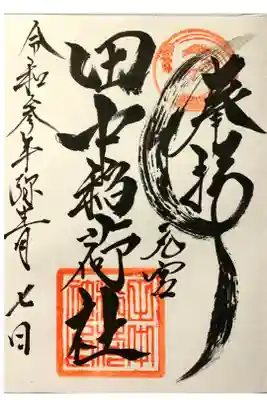 奉拝
元宮
田中稲荷社
令和参年弥生 七日